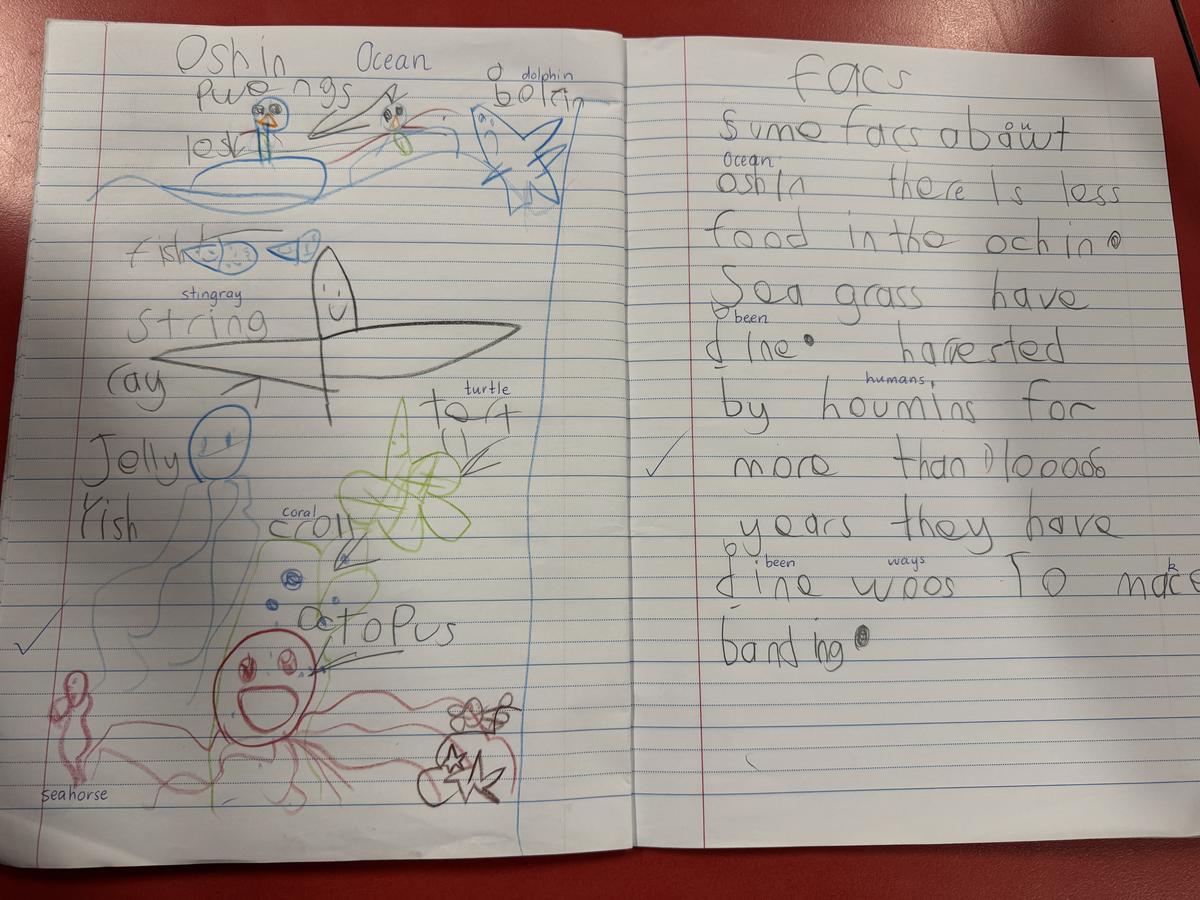 Oshin Ocean
pwengs
dolphin
bolfin
fish
stingray
string
ray
turtle
Jelly
fish
coral
croll
octopus
seahorse
facs
sume facs abawt
ou
Ocean
oshin there is less
food in the ochin.
Sea grass have
been
dine. harested
humans,
by houmins for
more than 10000
years they have
been ways
dine woos To mace
k
banding.